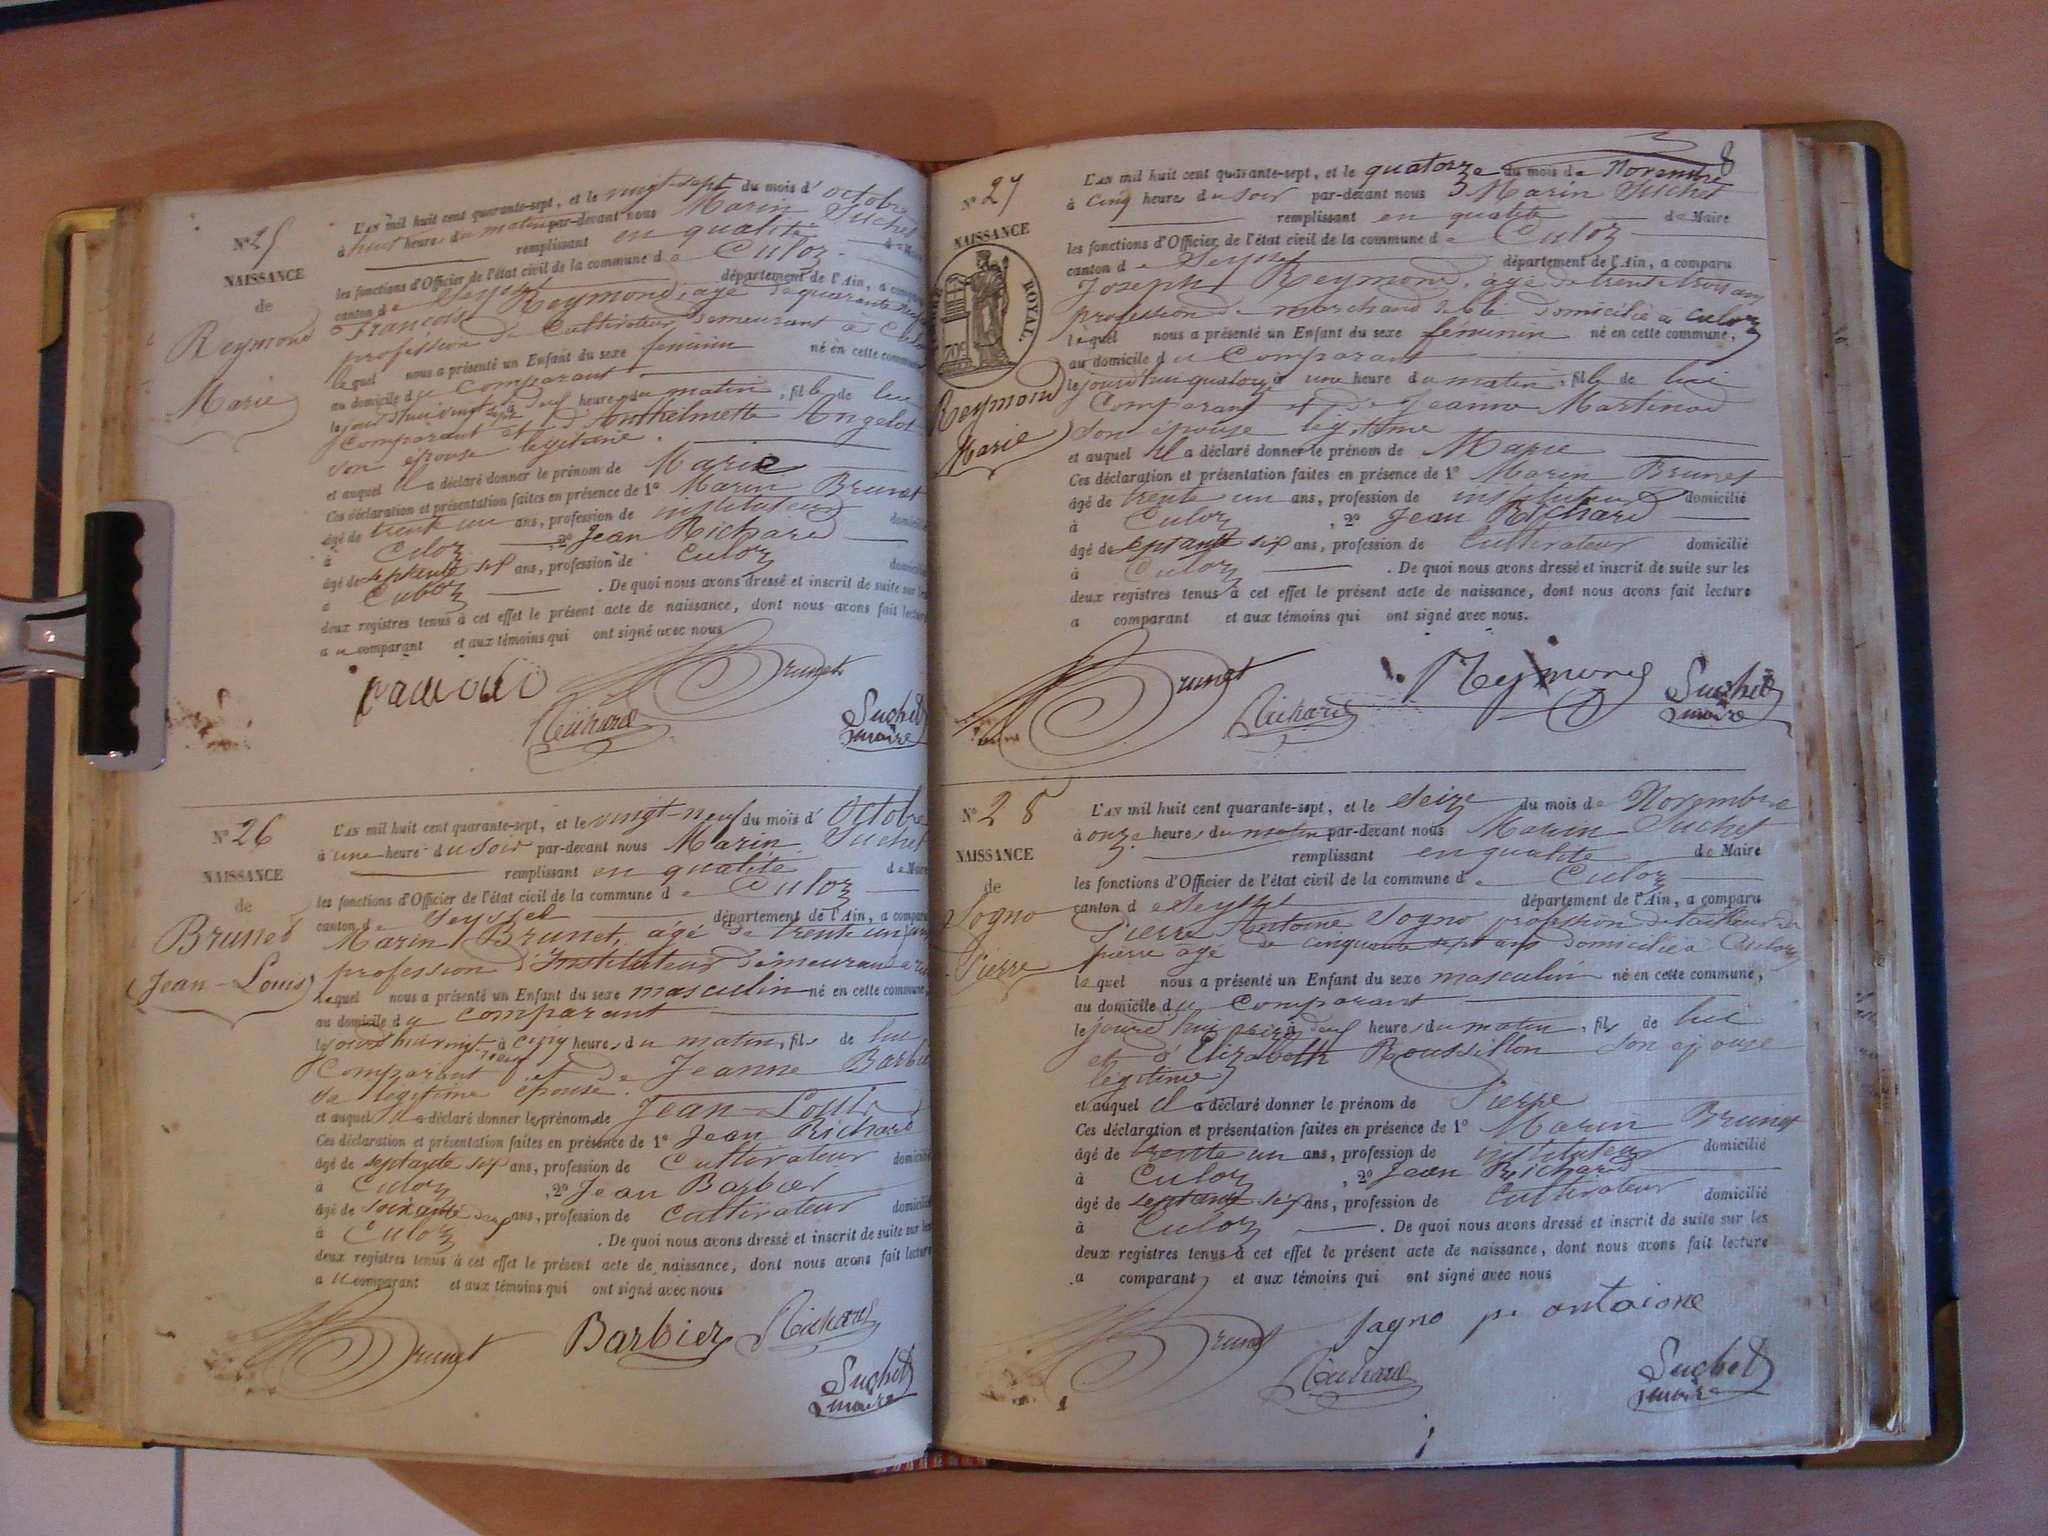 N° 25
NAISSANCE
de
Reymond
Marie
L'AN mil huit cent quarante-sept, et le vingt-sept du mois d'octobre
à huit heures du matin par-devant nous Marin Suchet
remplissant en qualité de Maire
les fonctions d'Officier de l'état civil de la commune de Culoz
canton de Seyssel département de l'Ain, a comparu
François Reymond, âgé de quarante
profession de Cultivateur demeurant à Culoz
lequel nous a présenté un Enfant du sexe feminin né en cette commune
au domicile du comparant
le jourd'hui vingt sept à heures du matin, fille de lui
Comparant et d'Anthelmette Angelot
son épouse légitime.
et auquel il a déclaré donner le prénom de Marie
Ces déclaration et présentation faites en présence de 1° Marin Brunet
âgé de trente un ans, profession de instituteur domicilié
à Culoz, 2° Jean Richard
âgé de septante six ans, profession de Culoz domicilié
à Culoz. De quoi nous avons dressé et inscrit de suite sur les
deux registres tenus à cet effet le présent acte de naissance, dont nous avons fait lecture
au comparant et aux témoins qui ont signé avec nous
Brunet
Richard
Suchet
maire
N° 26
NAISSANCE
de
Brunet
Jean-Louis
L'AN mil huit cent quarante-sept, et le vingt-neuf du mois d'Octobre
à une heure du soir par-devant nous Marin Suchet
remplissant en qualité de Maire
les fonctions d'Officier de l'état civil de la commune de Culoz
canton de Seyssel département de l'Ain, a comparu
Marin Brunet, âgé de trente un ans
profession d'Instituteur demeurant à
lequel nous a présenté un Enfant du sexe masculin né en cette commune,
au domicile du comparant
le jourd'hui vingt neuf à cinq heures du matin, fils de lui
Comparant et de Jeanne Barbier
sa légitime épouse.
et auquel il a déclaré donner les prénom de Jean-Louis
Ces déclaration et présentation faites en présence de 1° Jean Richard
âgé de septante six ans, profession de Cultivateur domicilié
à Culoz, 2° Jean Barbier
âgé de soixante ans, profession de Cultivateur domicilié
à Culoz. De quoi nous avons dressé et inscrit de suite sur les
deux registres tenus à cet effet le présent acte de naissance, dont nous avons fait lecture
au comparant et aux témoins qui ont signé avec nous
Brunet Barbier Richard
Suchet
maire
8
N° 27
NAISSANCE
ROYAL.
70c
Reymond
Marie
L'AN mil huit cent quarante-sept, et le quatorze du mois de Novembre
à cinq heures du soir par-devant nous Marin Suchet
remplissant en qualité de Maire
les fonctions d'Officier de l'état civil de la commune de Culoz
canton de Seyssel département de l'Ain, a comparu
Joseph Reymond, âgé de trente trois ans
profession de marchand de blé domicilié à Culoz
lequel nous a présenté un Enfant du sexe feminin né en cette commune,
au domicile du Comparant
le jourd'hui quatorze à une heure du matin, fille de lui
Comparant et de Jeanne Martinod
son épouse légitime
et auquel il a déclaré donner le prénom de Marie
Ces déclaration et présentation faites en présence de 1° Marin Brunet
âgé de trente un ans, profession de instituteur domicilié
à Culoz, 2° Jean Richard
âgé de septante six ans, profession de Cultivateur domicilié
à Culoz. De quoi nous avons dressé et inscrit de suite sur les
deux registres tenus à cet effet le présent acte de naissance, dont nous avons fait lecture
a comparant et aux témoins qui ont signé avec nous.
Brunet Richard Reymond Suchet
maire
N° 28
NAISSANCE
de
Sogno
Pierre
L'AN mil huit cent quarante-sept, et le seize du mois de Novembre
à onze heures du matin par-devant nous Marin Suchet
remplissant en qualité de Maire
les fonctions d'Officier de l'état civil de la commune de Culoz
canton de Seyssel département de l'Ain, a comparu
Pierre Antoine Sogno profession de tailleur de
pierre âgé de cinquante sept ans domicilié à Culoz
lequel nous a présenté un Enfant du sexe masculin né en cette commune,
au domicile du Comparant
le jourd'hui seize à heures du matin, fils de lui
et d'Elizabeth Roussillon son épouse
légitime
et auquel il a déclaré donner le prénom de Pierre
Ces déclaration et présentation faites en présence de 1° Marin Brunet
âgé de trente un ans, profession de instituteur domicilié
à Culoz, 2° Jean Richard
âgé de septante six ans, profession de Cultivateur domicilié
à Culoz. De quoi nous avons dressé et inscrit de suite sur les
deux registres tenus à cet effet le présent acte de naissance, dont nous avons fait lecture
a comparant et aux témoins qui ont signé avec nous
Brunet sagno pi antoione
Richard Suchet
maire